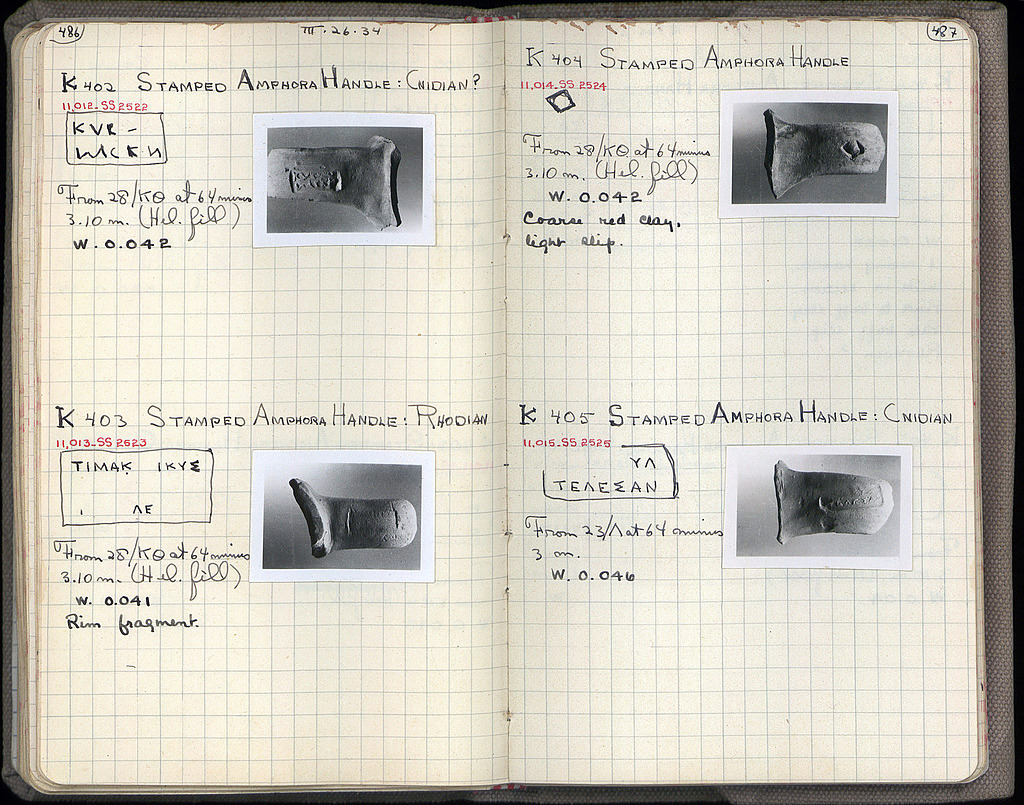 486
III.26.34
K 402 STAMPED AMPHORA HANDLE: CNIDIAN?
11,012-SS 2522
KVR -
From 28/ΚΘ at 64 minus
3.10 m. (Hel. fill)
W. 0.042
K 403 STAMPED AMPHORA HANDLE: RHODIAN
11,013-SS 2523
ΤΙΜΑΚ ΙΚΥΣ
ΛΕ
From 28/ΚΘ at 64 minus
3.10 m. (Hel. fill)
W. 0.041
Rim fragment.
487
K 404 STAMPED AMPHORA HANDLE
11,014-SS 2524
From 28/ΚΘ at 64 minus
3.10 m. (Hel. fill)
W. 0.042
Coarse red clay,
light slip.
K 405 STAMPED AMPHORA HANDLE: CNIDIAN
11,015-SS 2525
ΥΛ
ΤΕΛΕΣΑΝ
From 23/Λ at 64 minus
3 m.
W. 0.046